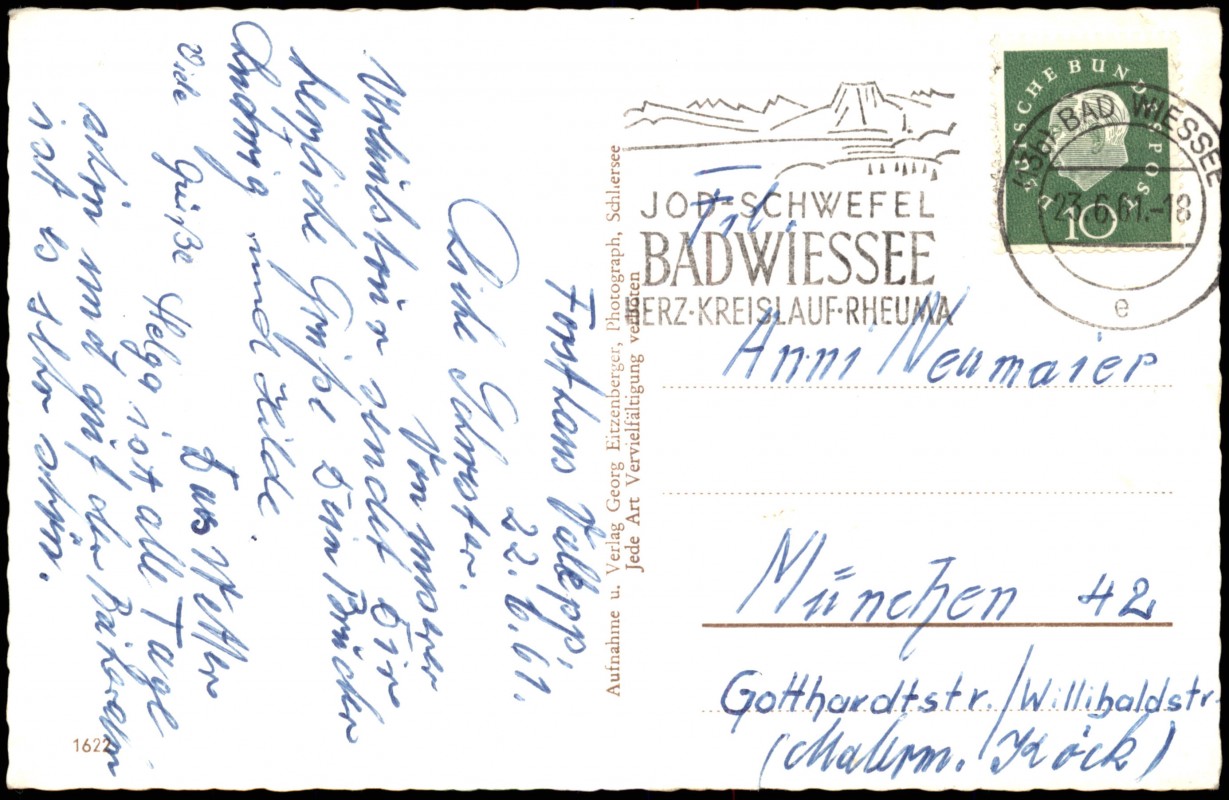 Forsthaus Valepp,
22.6.61.
Liebe Schwester.
Von unserer
sendet Dir
herzliche Grüße Dein Bruder
Ludwig und Hilde.
Viele Grüße Helga
Das Wetter
ist alle Tage
schön und auf der
ist es sehr schön.
1622
Aufnahme u. Verlag Georg Eitzenberger, Photograph, Schliersee
Jede Art Vervielfältigung verboten
JOD-SCHWEFEL
BAD WIESSEE
HERZ·KREISLAUF·RHEUMA
DEUTSCHE BUNDESPOST
10
BAD WIESSEE
23.6.61.-18
e
Frl.
Anni Neumaier
München 42
Gotthardtstr./Willibaldstr.
(Malerm. Köck)